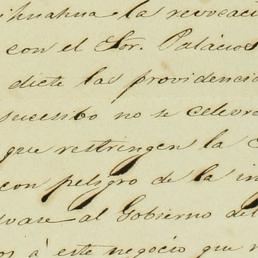 ihuahua la revocaci
con el Sor. Palacios
dicte las providencia
sucesibo no se celevre
que restringen la C
con peligro de la in
vase al Gobierno del
os á este negocio que